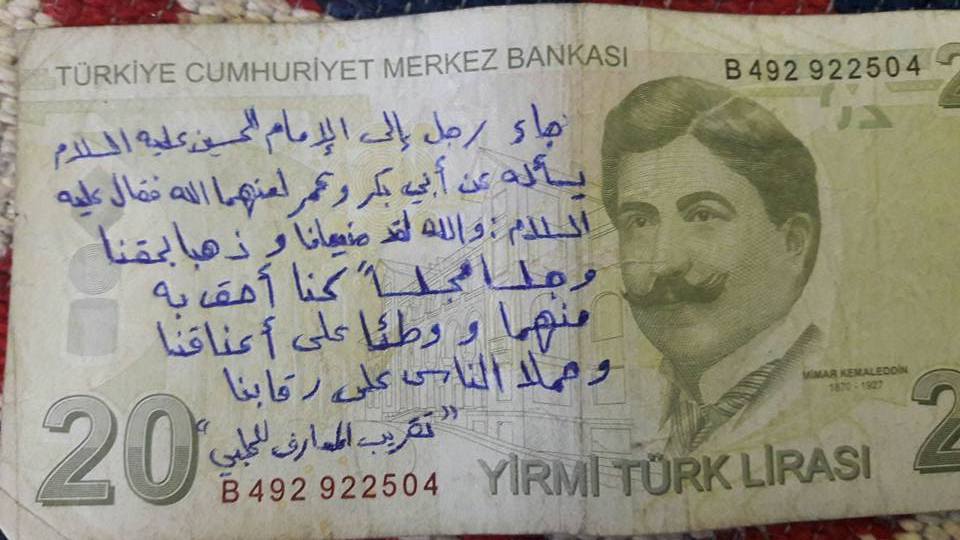 TÜRKİYE CUMHURİYET MERKEZ BANKASI
B 492 922504
جاء رجل إلى الإمام الحسين عليه السلام
يسأله عن أبي بكر وعمر لعنهما الله فقال عليه
السلام: والله لقد ضيعانا وذهبا بحقنا
وجلسا مجلساً كنا أحق به
منهما ووطئا على أعناقنا
وحملا الناس على رقابنا
"تقريب المعارف للحلبي"
MİMAR KEMALEDDİN
1870 - 1927
20
B 492 922504
YİRMİ TÜRK LİRASI